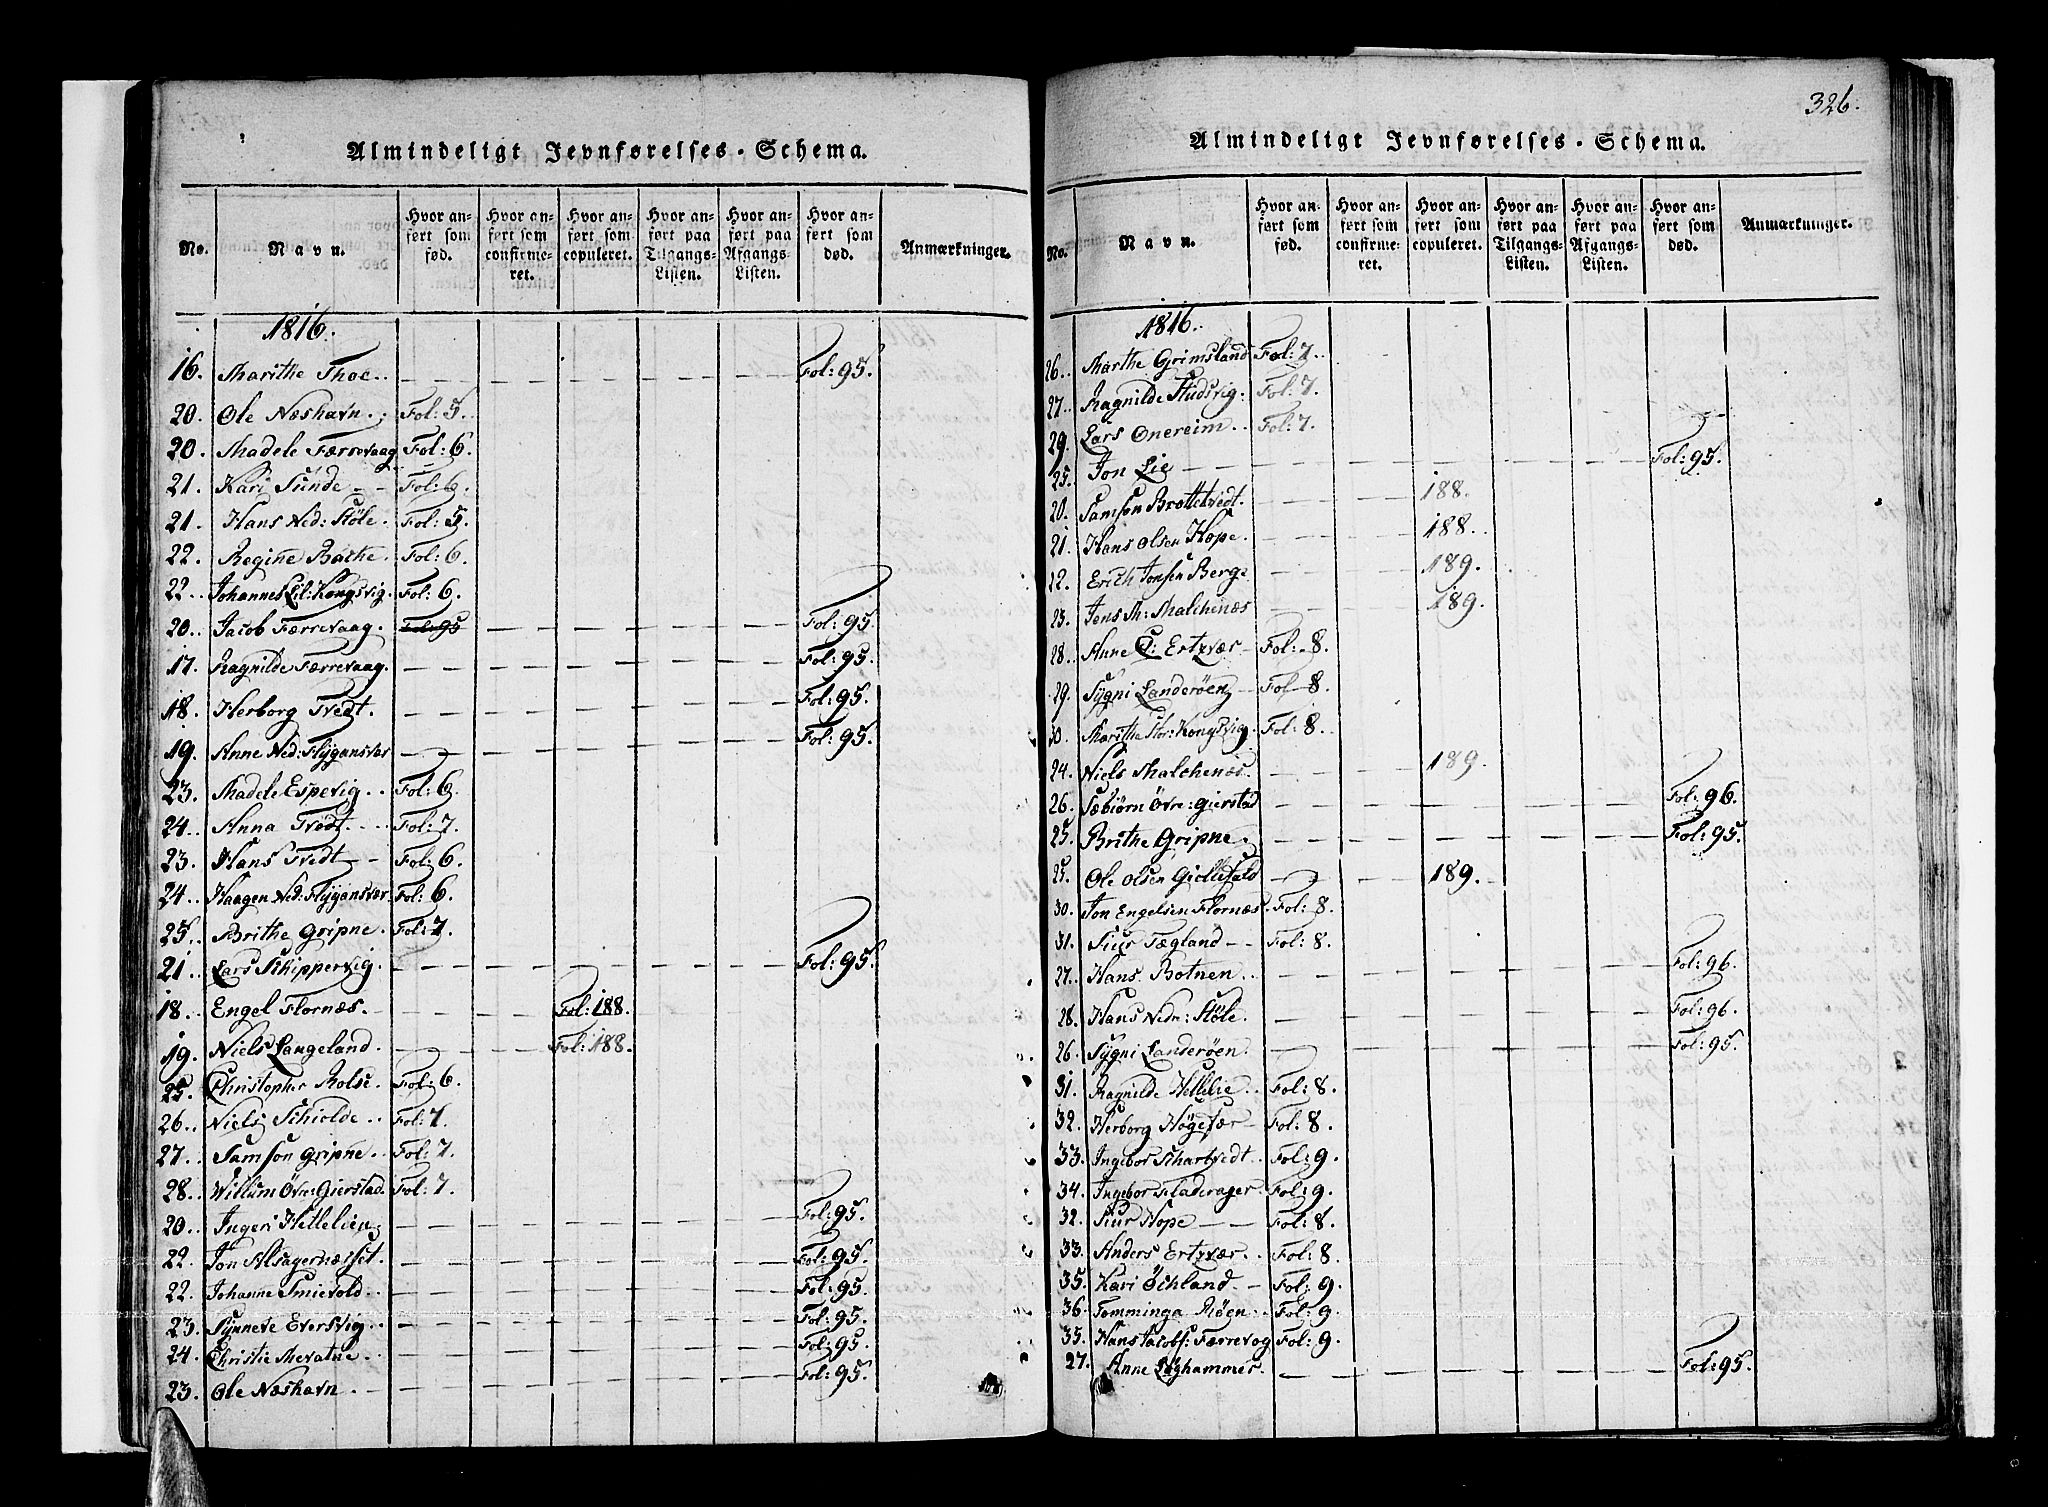 326.
Almindeligt Jevnførelses-Schema.
No. Navn. Hvor anført som fød. Hvor anført som confirmeret. Hvor anført som copuleret. Hvor anført paa Tilgangs-Listen. Hvor anført paa Afgangs-Listen. Hvor anført som død. Anmærkninger.
1816.
16. Marithe Thoe. Fol: 95.
20. Ole Næshavn. Fol: 5.
20. Madele Færrevaag Fol: 6.
21. Kari Sunde Fol: 6.
21. Hans Ned: Støle. Fol: 5.
22. Regine Bathe. Fol: 6.
22. Johannes Lil: Kongsvig. Fol: 6.
20. Jacob Færrevaag. Fol: 95 Fol: 95.
17. Ragnilde Færrevaag. Fol: 95.
18. Herborg Tvedt. Fol: 95.
19. Anne Ned: Flygansvær Fol: 95.
23. Madele Espevig. Fol: 6.
24. Anna Tvedt. Fol: 7.
23. Hans Tvedt Fol: 6.
24. Haagen Ned: Flygansvær Fol: 6.
25. Brithe Gripne. Fol: 7.
21. Lars Skippervig. Fol: 95.
18. Engel Flornæs. Fol: 188.
19. Niels Langeland. Fol: 188.
25. Christopher Rolse. Fol: 6.
26. Niels Schiolde. Fol: 7.
27. Samson Gripne. Fol: 7.
28. Willum Övre: Gierstad. Fol: 7.
20. Ingeri Hettelien Fol: 95.
22. Jon Alsagernæsset. Fol: 95.
22. Johanne Smievold. Fol: 95.
23. Synneve Eversvig. Fol: 95.
24. Christie Mevatne. Fol: 95.
23. Ole Næshavn Fol: 95.
Almindeligt Jevnførelses-Schema.
No. Navn. Hvor anført som fød. Hvor anført som confirmeret. Hvor anført som copuleret. Hvor anført paa Tilgangs-Listen. Hvor anført paa Afgangs-Listen. Hvor anført som død. Anmærkninger.
1816.
26. Marthe Grimsland Fol: 7.
27. Ragnilde Hudsvig. Fol: 7.
29. Lars Onereim. Fol: 7.
25. Jon Lie Fol: 95.
20. Samson Brottetvedt. 188.
21. Hans Olsen Hope. 188.
22. Erich Jonsen Berge 189.
23. Jens M: Malchenæs 189.
28. Anne C: Ertzvær Fol: 8.
29. Sygni Landerøen Fol: 8.
30. Marithe Stor: Kongsvig. Fol: 8.
24. Niels Malchenæs. 189.
26. Sæbiørn Övre: Gierstad Fol: 96.
25. Brithe Gripne. Fol: 95.
25. Ole Olsen Giellefald 189.
30. Jon Engelsen Flornæs. Fol: 8.
31. Siur Tægland Fol: 8.
27. Hans Botnen. Fol: 96.
28. Hans Nedr: Støle. Fol: 96.
26. Sygni Landerøen. Fol: 95.
31. Ragnilde Hellelie. Fol: 8.
32. Herborg Høgevær Fol: 8.
33. Ingebor Schartvedt. Fol: 9.
34. Ingebor Fladerager Fol: 9.
32. Siur Hope Fol: 8.
33. Anders Ertzvær. Fol: 8.
35. Kari Öchland Fol: 9.
36. Tomminga Røen. Fol: 9.
35. Hans Jacobs: Færrevog Fol: 9.
27. Anne Løghammer. Fol: 95.